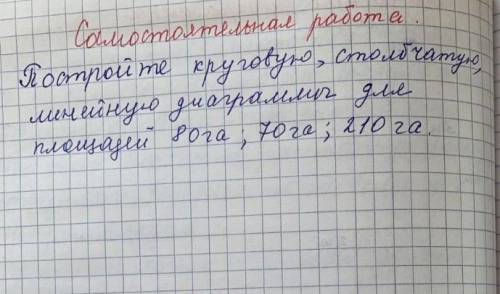 Самостоятельная работа.
Постройте круговую, столбчатую,
линейную диаграммы для
площадей 80га; 70га; 210га.